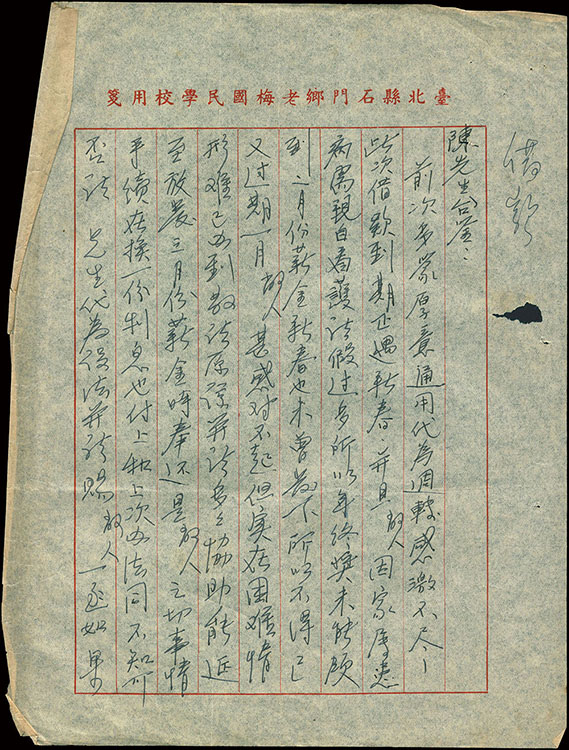 臺北縣石門鄉老梅國民學校用箋
借款
陳先生台鑒:
前次多蒙厚意通用代為週轉感激不尽
此次借款到期正遇新春并且敝人因家屬患
病需親自看護請假过多所以年終獎未能領
到二月份薪金新春也未曾發下所以不得已
又过期一月敝人甚感对不起但实在困难情
形难已办到敬請原諒并請多多協助能延
至放發三月份薪金時奉还是敝人之切事情
手續在換一份利息也付上和上次办法同不知可
否請先生代為設法并請賜敝人一函如果